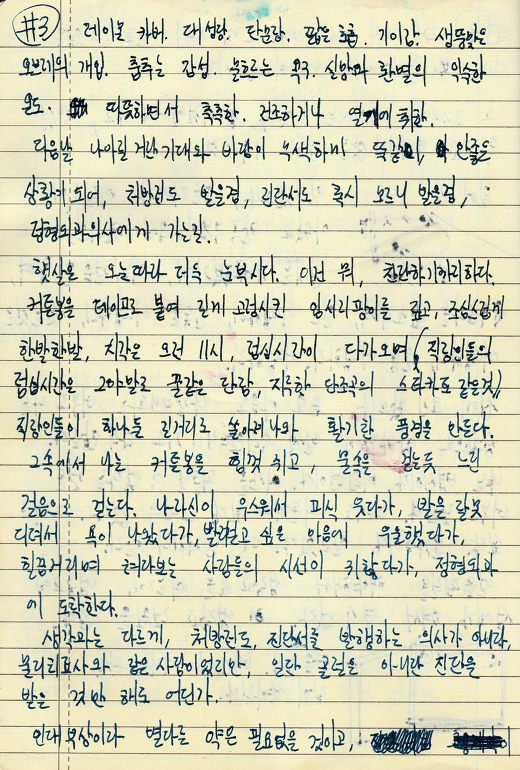 #3
레이몬 카버. 대성당. 단순함. 짧은 호흡. 기이함. 생뚱맞은
오브제의 개입. 춤추는 감성. 눈흐르는 욕구. 실망과 환멸의 익숙한
온도. 따뜻하면서 축축함. 건조하거나 열기에 취함.
다음날 나아릴 거란 기대와 바람이 무색하게 똑같이, 안좋은
상황이 되어, 처방전도 받을겸, 진단서도 혹시 모르니 받을겸,
정형외과의사에게 가는길.
햇살은 오늘따라 더욱 눈부시다. 이건 뭐, 찬란하기까지하다.
커튼봉을 테이프로 붙여 길게 고정시킨 임시지팡이를 짚고, 조심스럽게
한발한발, 시각은 오전 11시, 점심시간이 다가오며 (직장인들의
점심시간은 그야말로 꿀같은 단잠, 지루한 단조곡의 스타카토 같은것))
직장인들이 하나둘 길거리로 쏟아져나와 활기찬 풍경을 만든다.
그속에서 나는 커튼봉을 힘껏 쥐고, 물속을 걷는듯 느린
걸음으로 걷는다. 나자신이 우스워서 피식 웃다가, 발을 잘못
디뎌서 욕이 나왔다가, 빨리걷고 싶은 마음에 우울했다가,
힐끔거리며 쳐다보는 사람들의 시선이 귀찮다가, 정형외과
에 도착한다.
생각과는 다르게, 처방전도, 진단서를 발행하는 의사가 아니라,
물리치료사와 같은 사람이었지만, 일단 골절은 아니란 진단을
받은 것만 해도 어딘가.
인대부상이라 별다른 약은 필요없을 것이고,